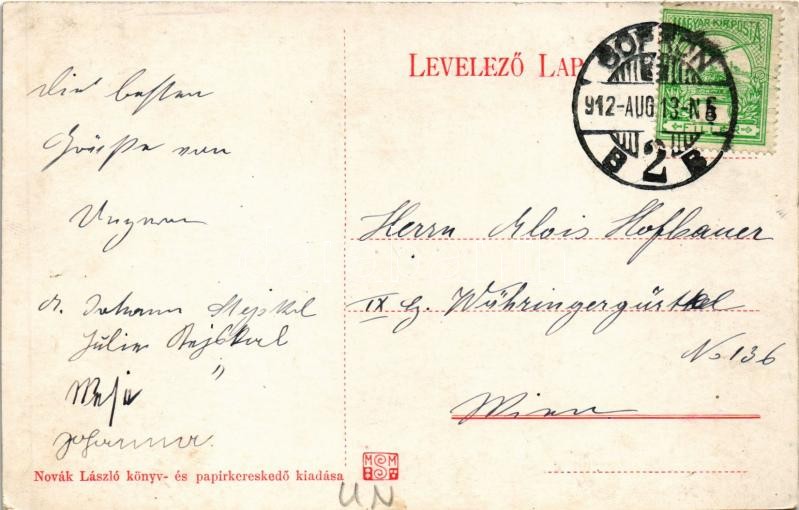 LEVELEZŐ LAP
MAGYAR KIR. POSTA
SOPRON
912-AUG 13-N6
B 2 B
FILLÉR
Die besten
Grüße von
Ungarn
Johann
Julie
"
Johanna
Herrn Alois Hofbauer
IX Währingergürtel
No 136
Wien
Novák László könyv- és papirkereskedő kiadása
M M
UN